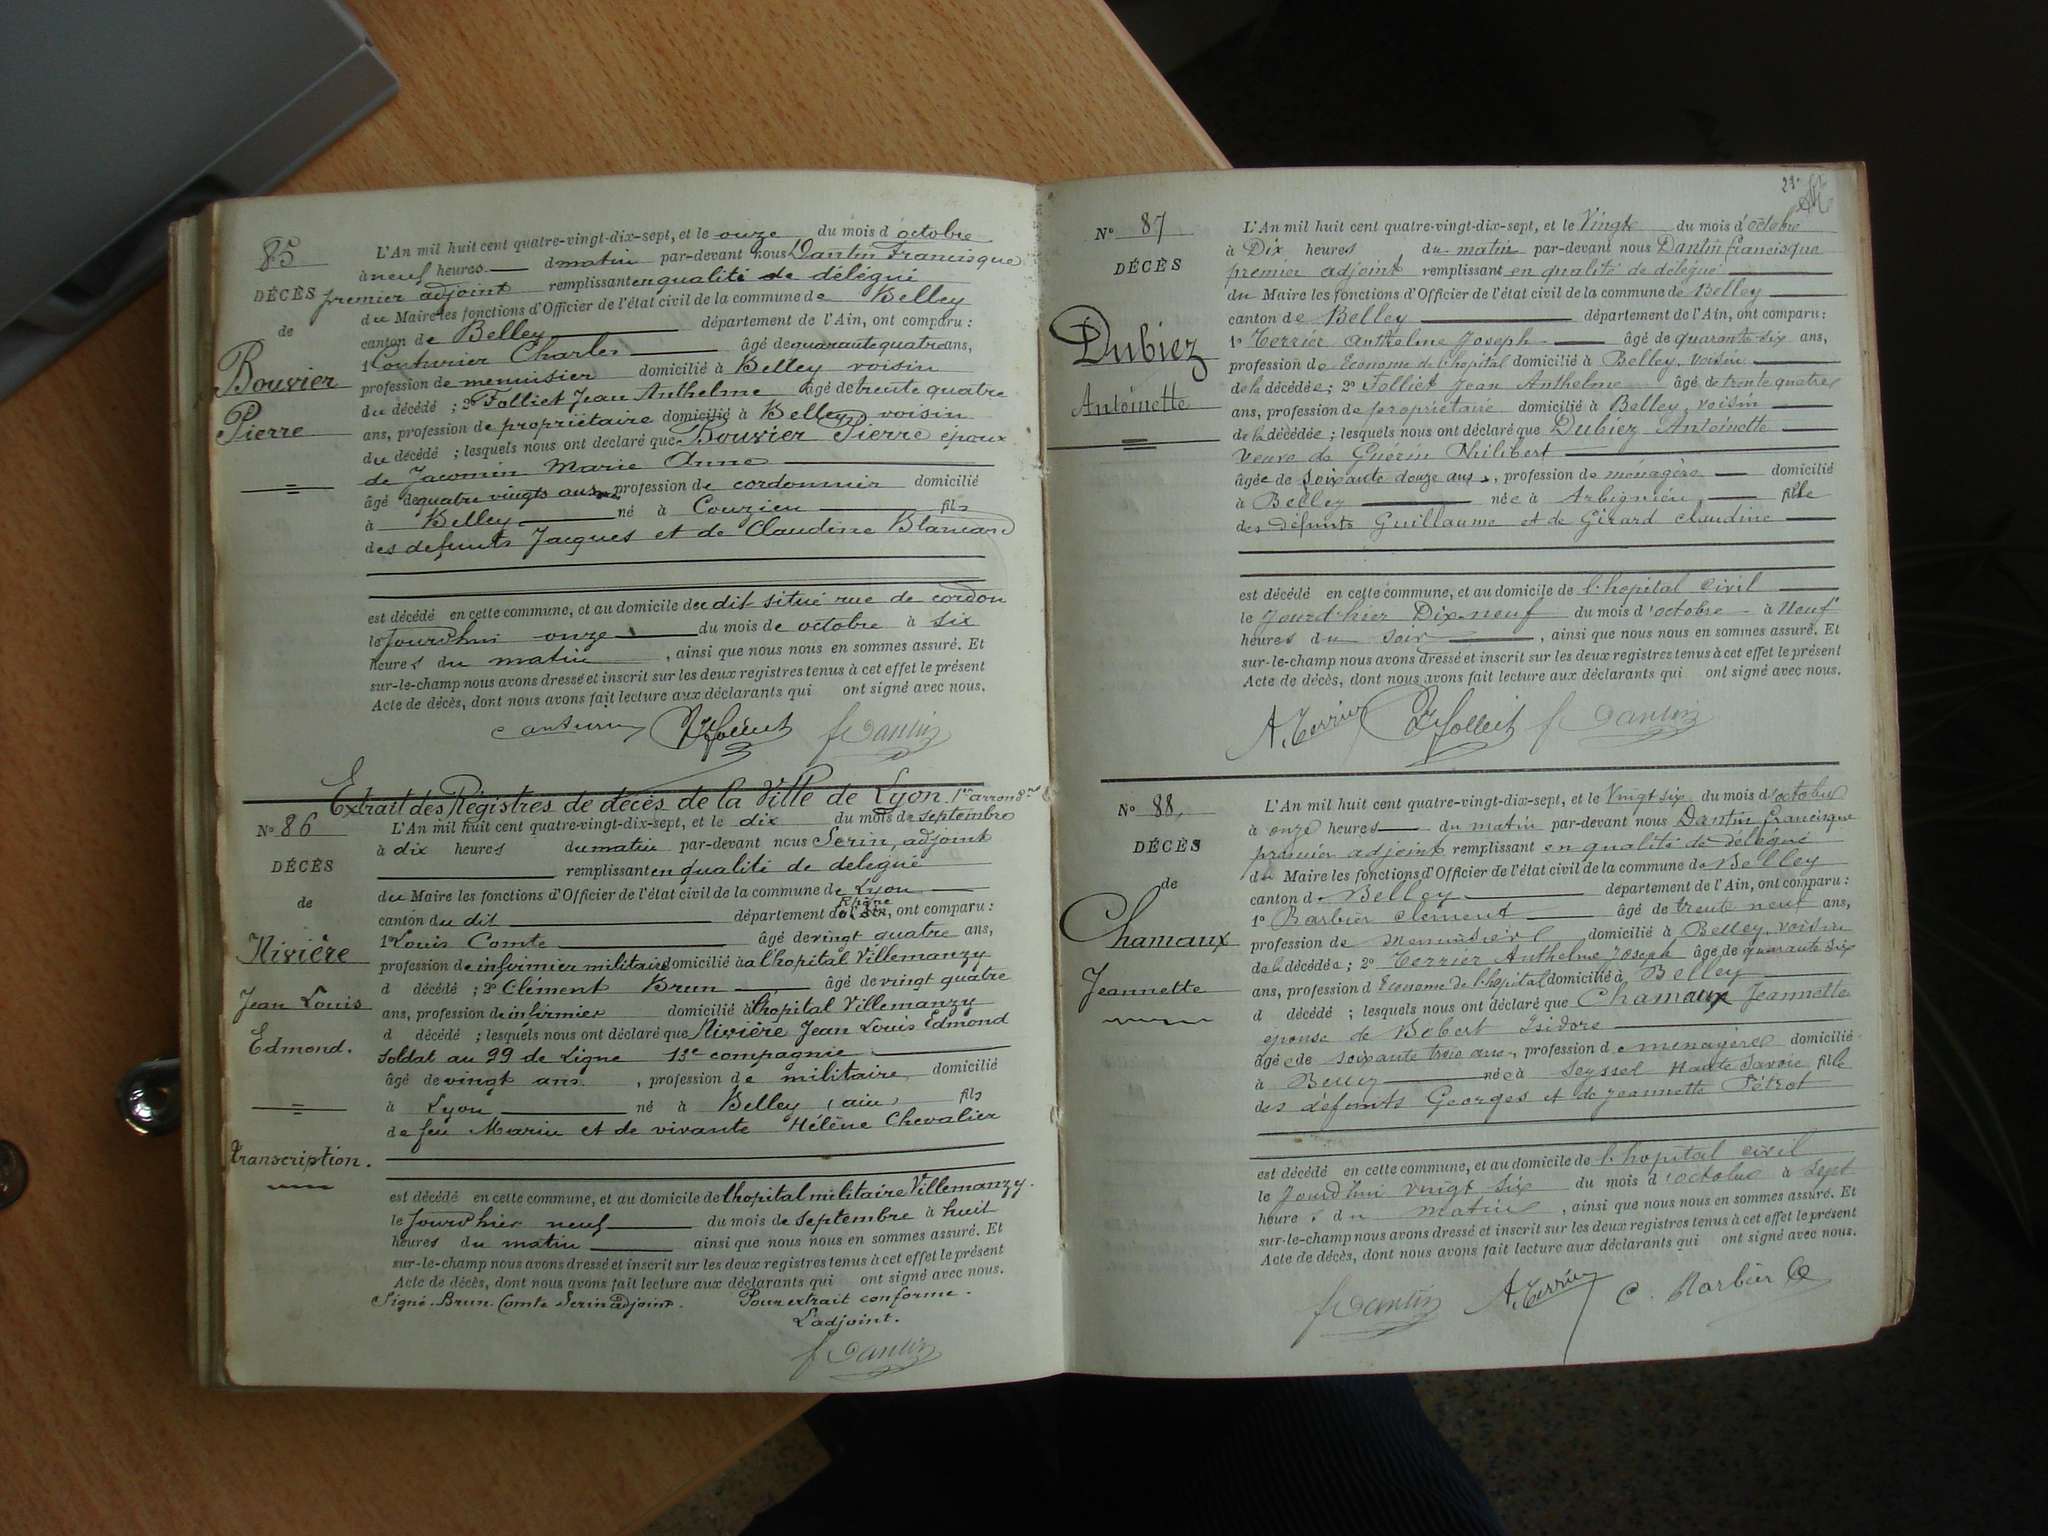 85
DÉCÈS
de
Bouvier
Pierre
L'An mil huit cent quatre-vingt-dix-sept, et le onze du mois d'octobre
à neuf heures du matin par-devant nous Dantin Francisque
premier adjoint remplissant en qualité de délégué
du Maire les fonctions d'Officier de l'état civil de la commune de Belley
canton de Belley département de l'Ain, ont comparu :
1 Couturier Charles âgé de quarante quatre ans,
profession de menuisier domicilié à Belley voisin
du décédé ; 2º Folliet Jean Anthelme âgé de trente quatre
ans, profession de propriétaire domicilié à Belley voisin
du décédé ; lesquels nous ont déclaré que Bouvier Pierre époux
de Jacomin Marie Anne
âgé de quatre vingts ans, profession de cordonnier domicilié
à Belley né à Couzieu fils
des defunts Jacques et de Claudine Blancard
est décédé en cette commune, et au domicile du dit situé rue de cordon
le Jourd'hui onze du mois de octobre à six
heures du matin , ainsi que nous nous en sommes assuré. Et
sur-le-champ nous avons dressé et inscrit sur les deux registres tenus à cet effet le présent
Acte de décès, dont nous avons fait lecture aux déclarants qui ont signé avec nous.
Folliet f Dantin
Extrait des Régistres de décès de la Ville de Lyon 1er arrondt
Nº 86
DÉCÈS
de
Rivière
Jean Louis
Edmond.
transcription.
L'An mil huit cent quatre-vingt-dix-sept, et le dix du mois de septembre
à dix heures du matin par-devant nous Serin, adjoint
remplissant en qualité de délégué
du Maire les fonctions d'Officier de l'état civil de la commune de Lyon
canton du dit département du Rhône, ont comparu :
1º Louis Comte âgé de vingt quatre ans,
profession de infirmier militaire domicilié à à l'hopital Villemanzy
d décédé ; 2º Clément Brun âgé de vingt quatre
ans, profession de infirmier domicilié à l'hopital Villemanzy
d décédé ; lesquels nous ont déclaré que Rivière Jean Louis Edmond
Soldat au 99 de Ligne 13e compagnie
âgé de vingt ans , profession de militaire domicilié
à Lyon né à Belley (ain) fils
de feu Marin et de vivante Hélène Chevalier
est décédé en cette commune, et au domicile de l'hopital militaire Villemanzy.
le Jourd'hier neuf du mois de septembre à huit
heures du matin ainsi que nous nous en sommes assuré. Et
sur-le-champ nous avons dressé et inscrit sur les deux registres tenus à cet effet le présent
Acte de décès, dont nous avons fait lecture aux déclarants qui ont signé avec nous.
Signé. Brun. Comte Serin adjoint. Pour extrait conforme.
L'adjoint.
f Dantin
Nº 87
DÉCÈS
Dubiez
Antoinette
L'An mil huit cent quatre-vingt-dix-sept, et le Vingt du mois d'octobre
à Dix heures du matin par-devant nous Dantin Francisque
premier adjoint remplissant en qualité de délégué
du Maire les fonctions d'Officier de l'état civil de la commune de Belley
canton de Belley département de l'Ain, ont comparu :
1º Terrier Anthelme Joseph âgé de quarante six ans,
profession de Econome de l'hopital domicilié à Belley, voisin
de la décédée ; 2º Folliet Jean Anthelme âgé de trente quatre
ans, profession de propriétaire domicilié à Belley, voisin
de la décédée ; lesquels nous ont déclaré que Dubiez Antoinette
veuve de Guérin Philibert
âgée de soixante douze ans, profession de ménagère domicilié
à Belley née à Arbignieu, fille
des défunts Guillaume et de Girard Claudine
est décédé en cette commune, et au domicile de l'hopital civil
le Jourd'hier Dix-neuf du mois d'octobre à Neuf
heures du soir , ainsi que nous nous en sommes assuré. Et
sur-le-champ nous avons dressé et inscrit sur les deux registres tenus à cet effet le présent
Acte de décès, dont nous avons fait lecture aux déclarants qui ont signé avec nous.
A. Terrier Folliet f Dantin
Nº 88,
DÉCÈS
de
Chamaux
Jeannette
L'An mil huit cent quatre-vingt-dix-sept, et le Vingt six du mois d'octobre
à onze heures du matin par-devant nous Dantin Francisque
premier adjoint remplissant en qualité de délégué
du Maire les fonctions d'Officier de l'état civil de la commune de Belley
canton d Belley département de l'Ain, ont comparu :
1º Barbier Clément âgé de trente neuf ans,
profession de menuisier domicilié à Belley, voisin
de la décédée ; 2º Terrier Anthelme Joseph âgé de quarante six
ans, profession d Econome de l'hopital domicilié à Belley
d décédé ; lesquels nous ont déclaré que Chamaux Jeannette
epouse de Bobert Isidore
âgée de soixante trois ans, profession de ménagère domicilié
à Belley née à Seyssel Haute Savoie fille
des défunts Georges et de Jeannette Pétrot
est décédé en cette commune, et au domicile de l'hopital civil
le Jourd'hui vingt six du mois d'octobre à sept
heures du matin , ainsi que nous nous en sommes assuré. Et
sur-le-champ nous avons dressé et inscrit sur les deux registres tenus à cet effet le présent
Acte de décès, dont nous avons fait lecture aux déclarants qui ont signé avec nous.
f Dantin A. Terrier C. Barbier